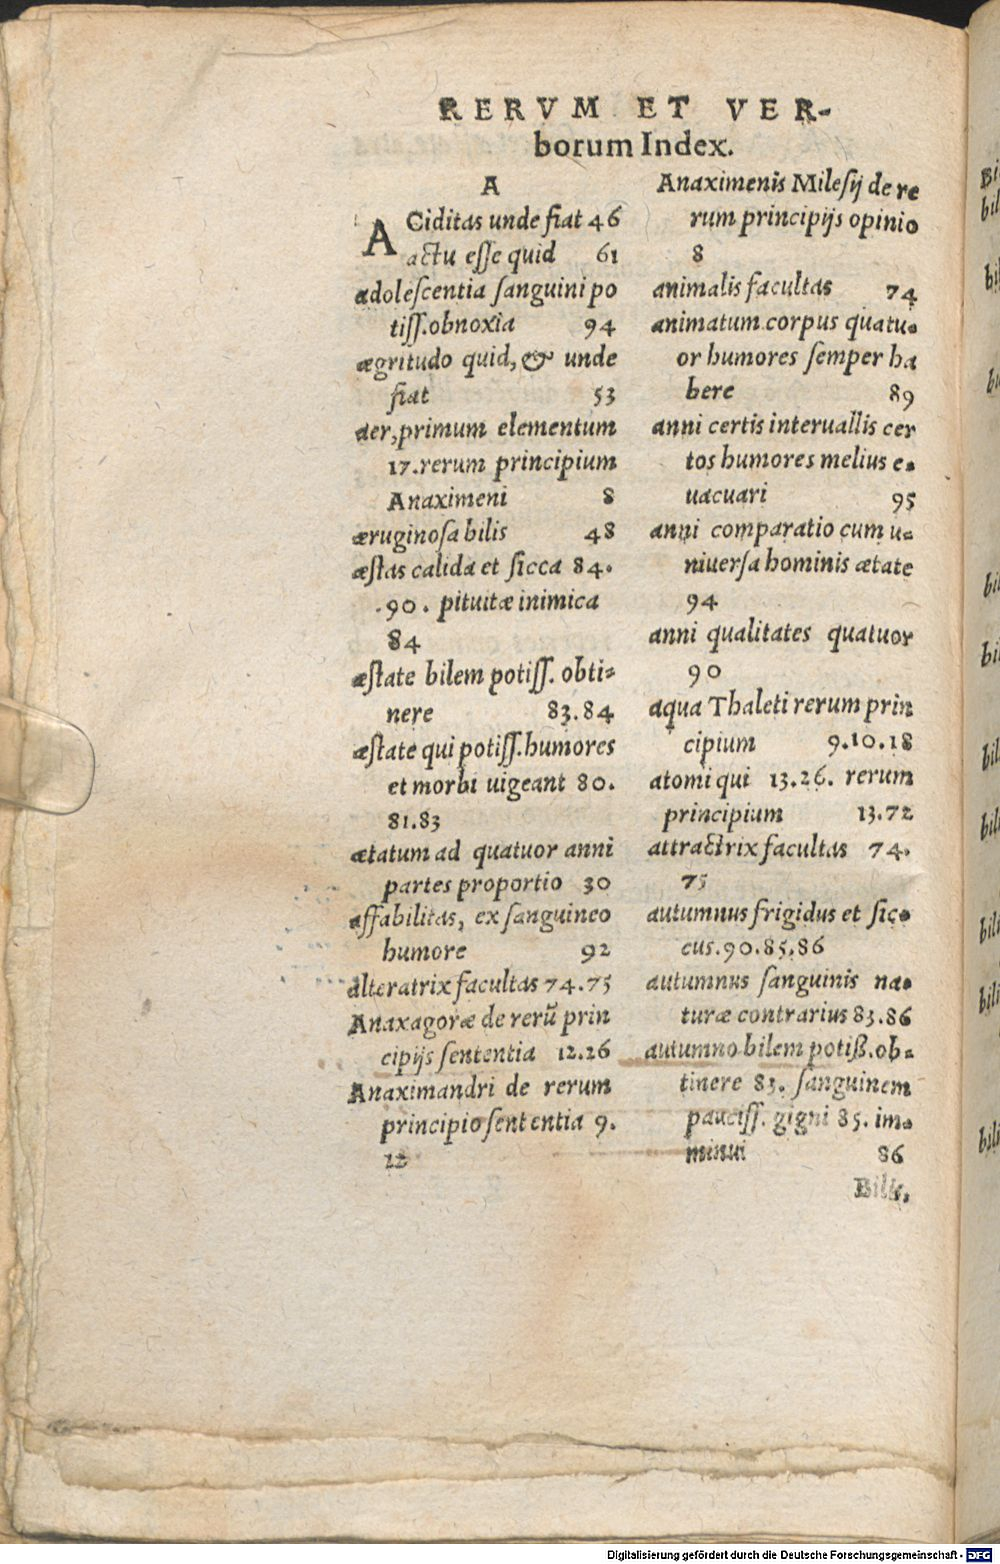 RERVM ET VER-
borum Index.
A
ACiditas unde fiat 46
actu esse quid 61
adolescentia sanguini po
tiss. obnoxia 94
ægritudo quid, & unde
fiat 53
aer, primum elementum
17. rerum principium
Anaximeni 8
æruginosa bilis 48
æstas calida et sicca 84.
90. pituitæ inimica
84
æstate bilem potiss. obti-
nere 83.84
æstate qui potiss. humores
et morbi uigeant 80.
81.83
ætatum ad quatuor anni
partes proportio 30
affabilitas, ex sanguineo
humore 92
alteratrix facultas 74.75
Anaxagoræ de rerū prin
cipijs sententia 12.26
Anaximandri de rerum
principio sententia 9.
12
Anaximenis Milesij de re
rum principijs opinio
8
animalis facultas 74
animatum corpus quatu-
or humores semper ha
bere 89
anni certis interuallis cer
tos humores melius e-
uacuari 95
anni comparatio cum u-
niuersa hominis ætate
94
anni qualitates quatuor
90
aqua Thaleti rerum prin
cipium 9.10.18
atomi qui 13.26. rerum
principium 13.72
attractrix facultas 74.
75
autumnus frigidus et sic-
cus. 90.85.86
autumnus sanguinis na-
turæ contrarius 83.86
autumno bilem potiß. ob-
tinere 83. sanguinem
pauciss. gigni 85. im-
minui 86
Bilis,
Digitalisierung gefördert durch die Deutsche Forschungsgemeinschaft - DFG